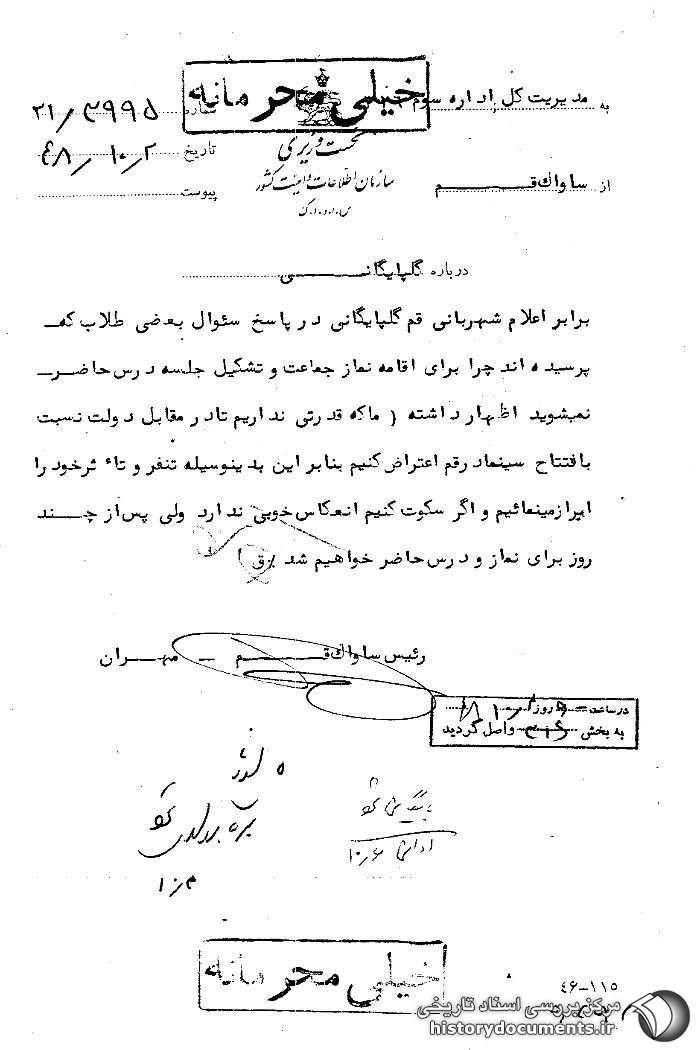 خیلی محرمانه
به مدیریت کل اداره سوم
شماره ۲۱/۳۹۹۵
نخست وزیری
تاریخ ۴۸/۱۰/۲
سازمان اطلاعات و امنیت کشور
از ساواک قم
پیوست
س.ا.و.ا.ک
درباره گلپایگانی
برابر اعلام شهربانی قم گلپایگانی در پاسخ سئوال بعضی طلاب که
پرسیده اند چرا برای اقامه نماز جماعت و تشکیل جلسه درس حاضر
نمیشوید اظهار داشته ( ماکه قدرتی نداریم تا در مقابل دولت نسبت
بافتتاح سینما در قم اعتراض کنیم بنابر این بدینوسیله تنفر و تاءثر خود را
ابراز مینمائیم و اگر سکوت کنیم انعکاس خوبی ندارد ولی پس از چند
روز برای نماز و درس حاضر خواهیم شد )
رئیس ساواک قم – مهران
در ساعت روز
به بخش ۳۱۶ واصل گردید
خیلی محرمانه
۴۶-۱۱۵
مرکز بررسی اسناد تاریخی
historydocuments.ir